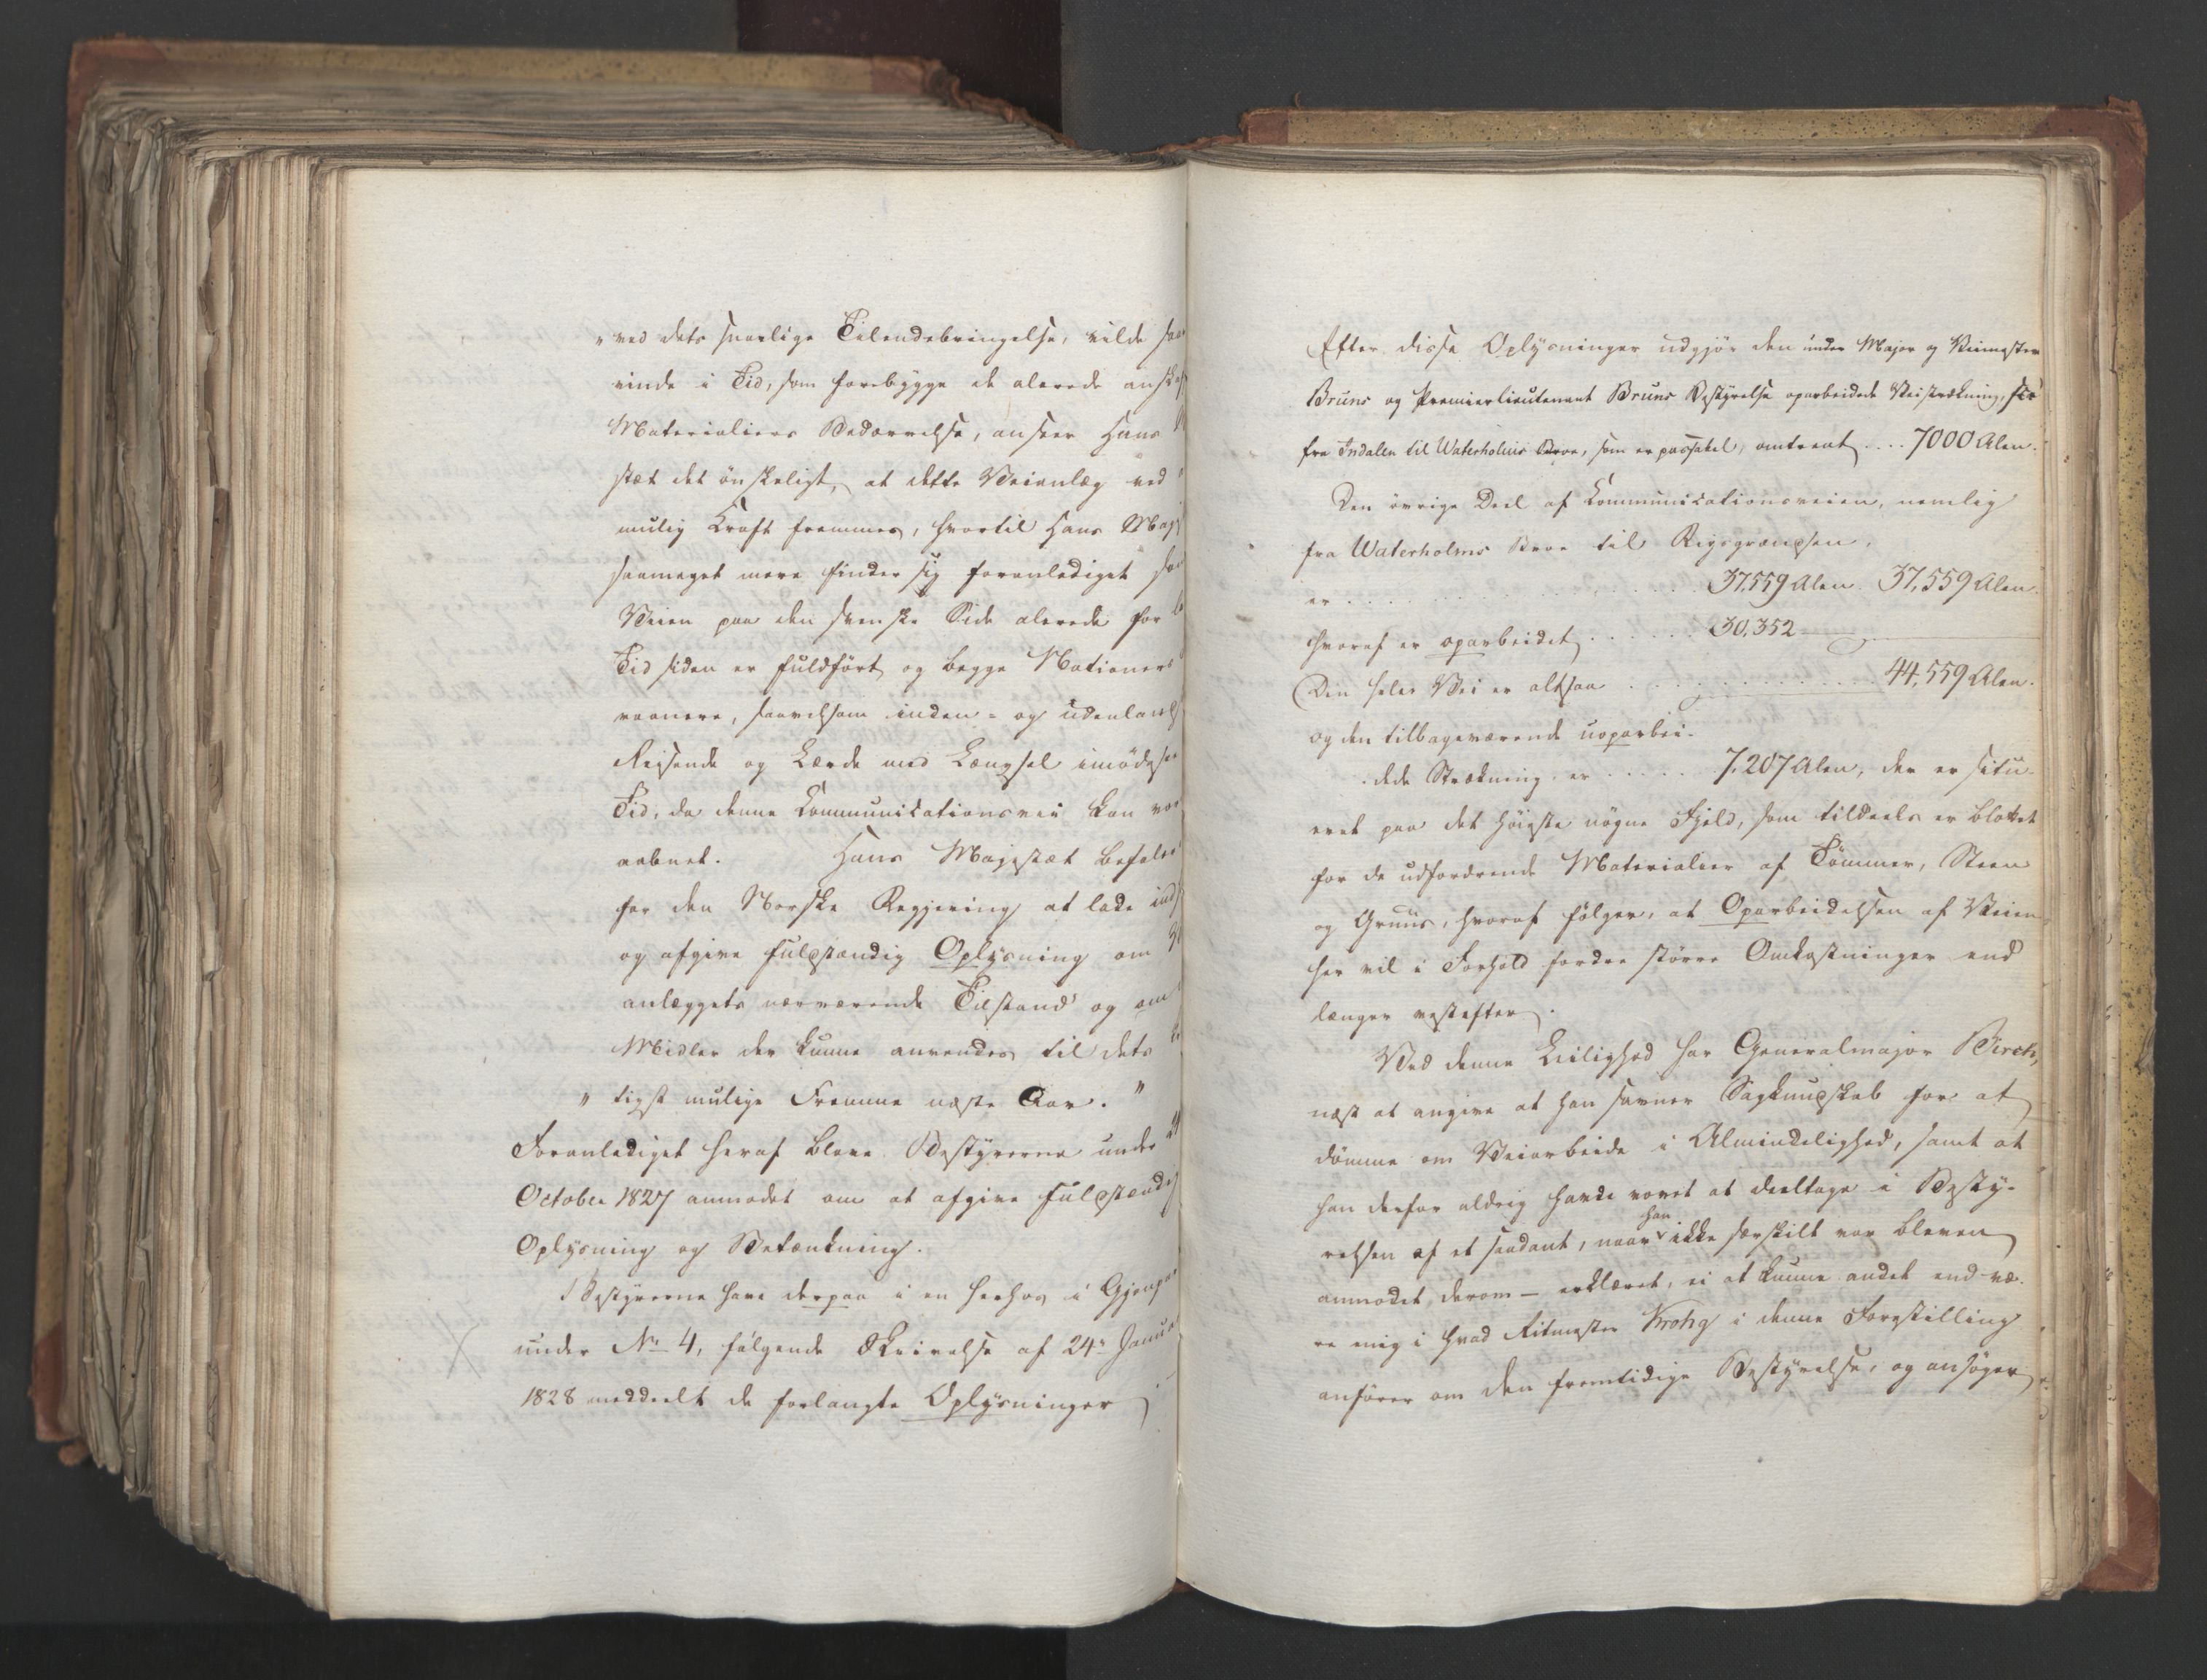 "ved dets snarlige Tilendebringelse, vilde saa
vinde i Tid, som forebygge de alerede anskaf
Materialiers Bedærvelse, anseer Hans
stæt det ønskeligt, at dette Veianlæg ved
mulig Kraft fremmes, hvortil Hans Maj
saameget mere finder sig foranlediget som
Veien paa den svenske Side alerede for
Tid siden er fuldført og begge Nationers
vaanere, saavelsom inden- og udenlands
Reisende og Lærde med Længsel imødesee
Tid, da denne Communicationsvei kan vor
aabnet. Hans Majestæt befaler
for den Norske Regjering at lade ind
og afgive fulstændig Oplysning om
anlæggets nærværende Tilstand og om
Midler der kunne anvendes til dets
"tigst mulige Fremme næste Aar."
Foranlediget heraf bleve Bestyrerne under 2
October 1827 anmodet om at afgive fulstændig
Oplysning og Betænkning.
Bestyrerne have derpaa i en herhos i Gjenpar
under No 4, følgende Skrivelse af 24de Janua
1828 meddeelt de forlangte Oplysninger
Efter disse Oplysninger udgjør den under Major og Veimester
Bruns og Premierlieutenant Bruns Bestyrelse oparbeidede Veistrækning,
fra Indalen til Waterholms Broe, som er passabel, omtrent .... 7000 Alen.
Den øvrige Deel af Communicationsveien, nemlig
fra Waterholms Broe til Rigsgrændsen,
er . . . . . . 37,559 Alen. 37,559 Alen.
hvoraf er oparbeidet . . . . . . 30,352 —
Den heele Vei er altsaa . . . . . . . . . 44,559 Alen.
og den tilbageværende uoparbei-
dede Strækning er . . . . . 7,207 Alen, der er situ-
eret paa det høieste nøgne Fjeld, som tildeels er blottet
for de udfordrende Materialier af Tømmer, Steen
og Gruus, hvoraf følger, at Oparbeidelsen af Veien
her vil i Forhold fordre større Omkostninger end
længer vestefter.
Ved denne Leilighed har Generalmajor Birch,
næst at angive at han savner Sagkundskab for at
dømme om Veiarbeide i Almindelighed, samt at
han derfor aldrig havde vovet at deeltage i Besty-
relsen af et saadant, naar han ikke særskilt var bleven
anmodet derom — erklæret, ei at kunne andet end væ-
re enig i hvad Ritmester Krohg i denne Forestilling
anfører om den fremtidige Bestyrelse, og ansøger